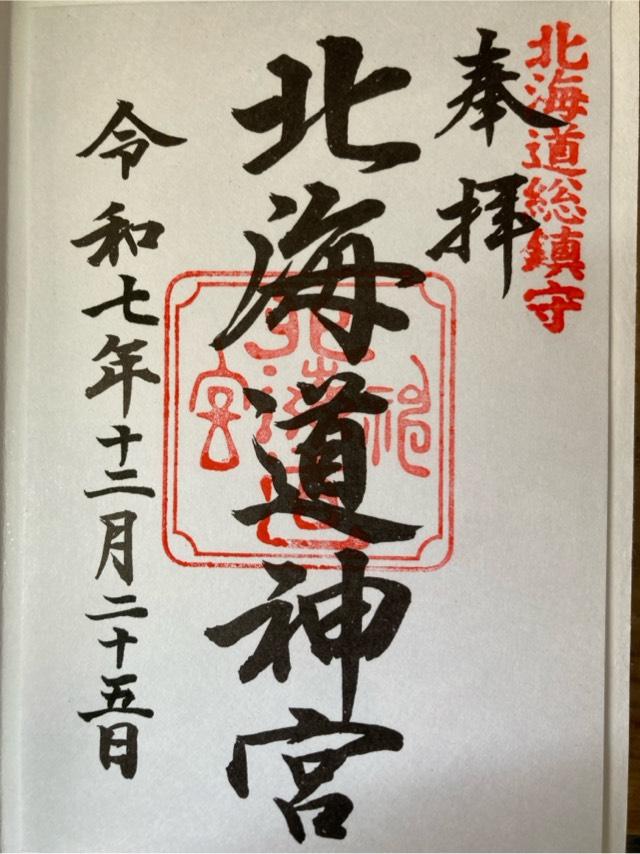 北海道総鎮守
奉拝
北海道神宮
令和七年十二月二十五日